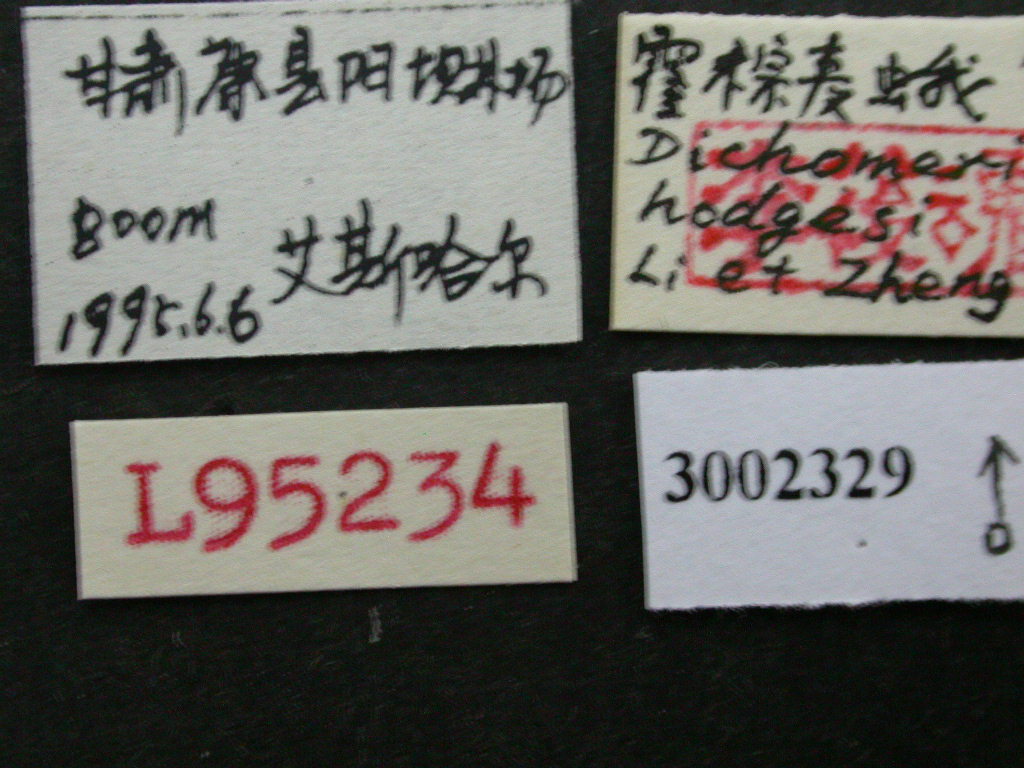 甘肃康县阳坝林场
800m
艾斯哈尔
1995.6.6
霍棕麦蛾
Dichomeri
hodgesi
Li et Zheng
L95234
3002329